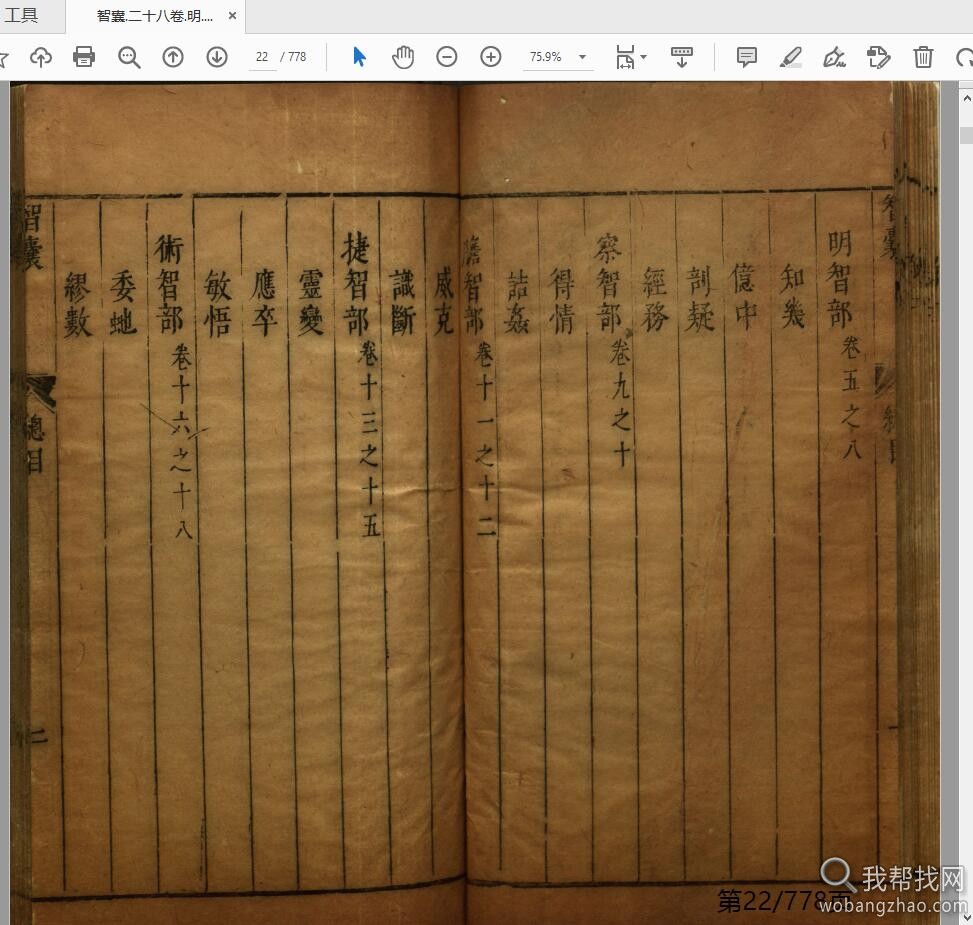 工具
智囊.二十八卷.明....
22 / 778
75.9%
明智部 卷五之八
知幾
億中
剖疑
經務
察智部 卷九之十
得情
詰姦
膽智部 卷十一之十二
威克
識斷
捷智部 卷十三之十五
靈變
應卒
敏悟
術智部 卷十六之十八
委蛇
繆數
智囊
總目
二
我帮找网
wobangzhao.com
第22/778页